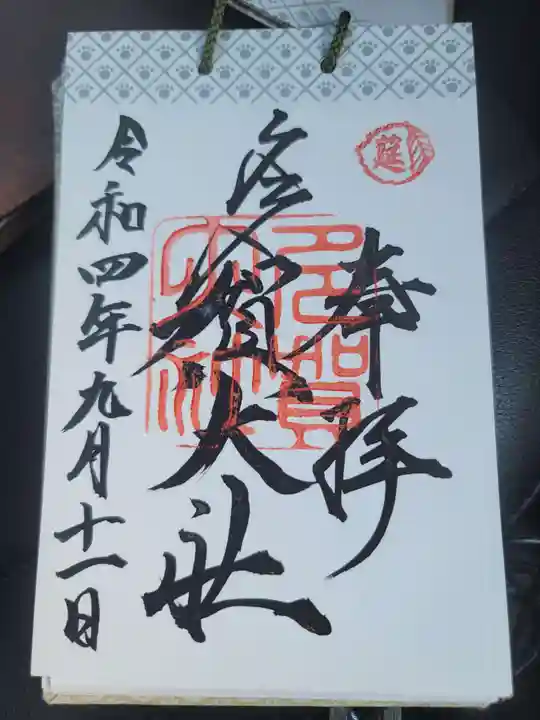 奉拝
多賀大社
令和四年九月十一日
莚
多賀
大社